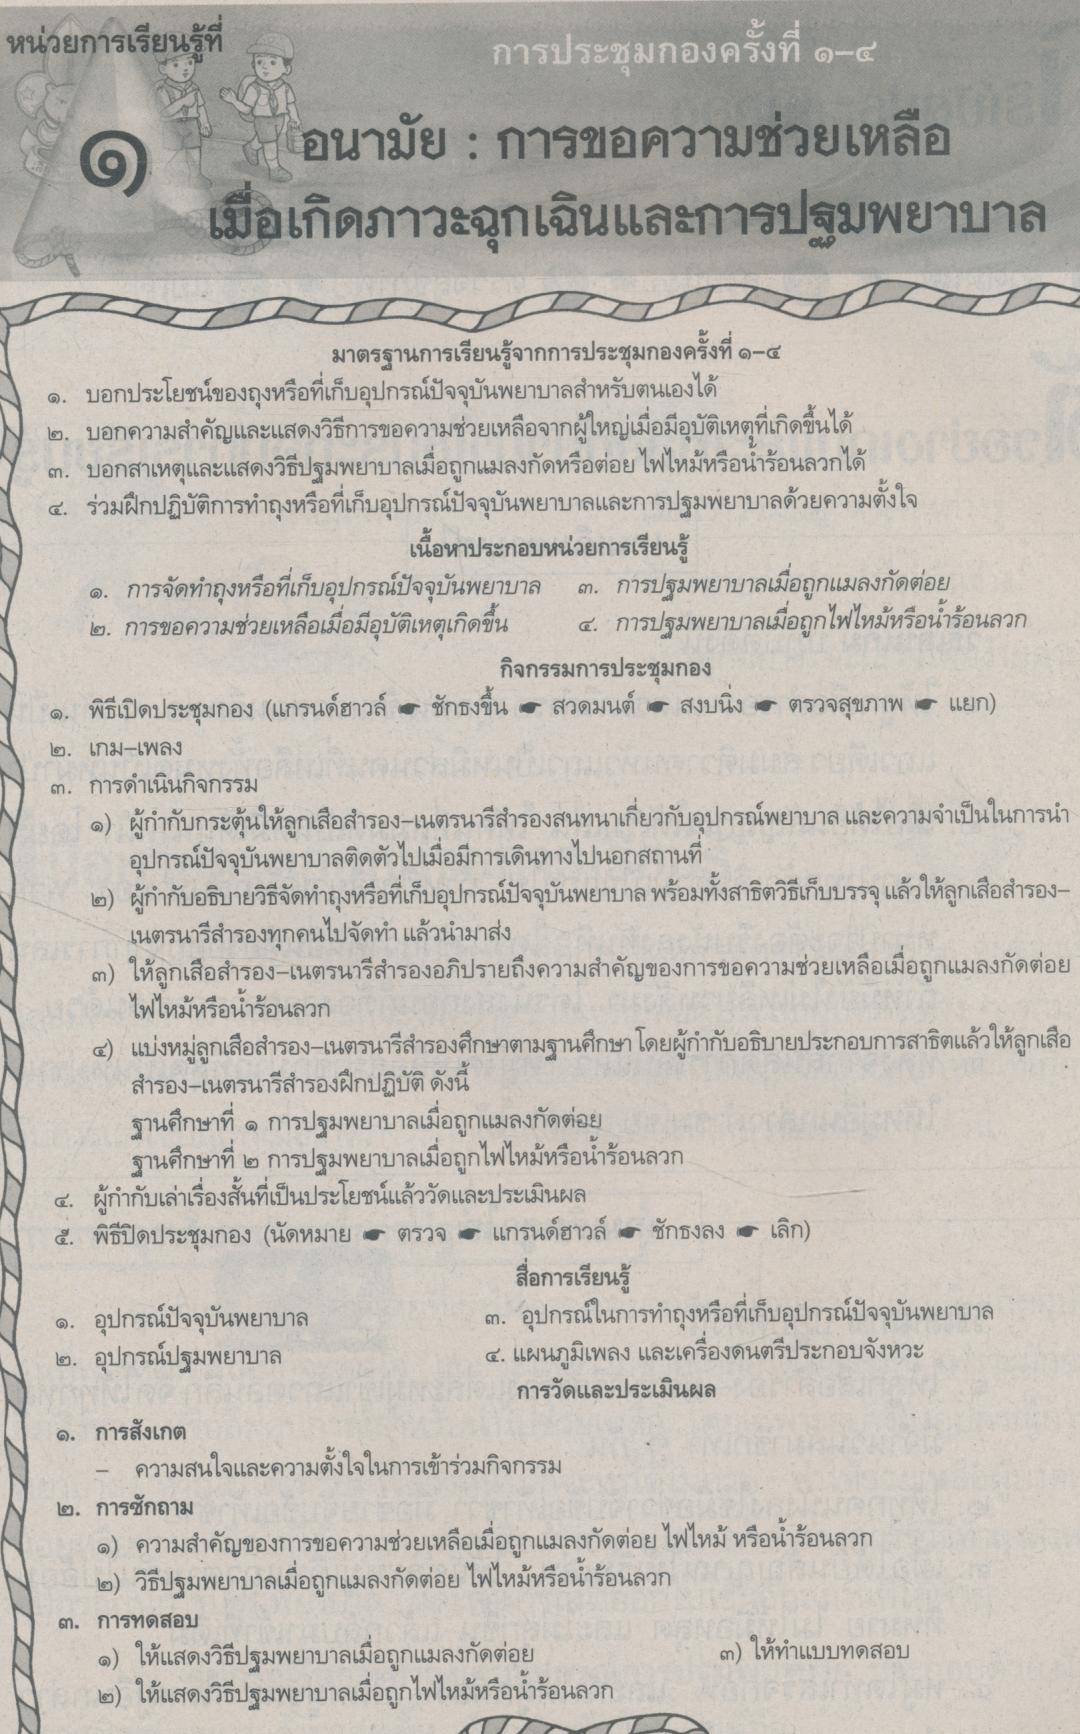 หน่วยการเรียนรู้ที่
การประชุมกองครั้งที่ ๑–๔
๑
อนามัย : การขอความช่วยเหลือ
เมื่อเกิดภาวะฉุกเฉินและการปฐมพยาบาล
มาตรฐานการเรียนรู้จากการประชุมกองครั้งที่ ๑–๔
๑. บอกประโยชน์ของถุงหรือที่เก็บอุปกรณ์ปัจจุบันพยาบาลสำหรับตนเองได้
๒. บอกความสำคัญและแสดงวิธีการขอความช่วยเหลือจากผู้ใหญ่เมื่อมีอุบัติเหตุที่เกิดขึ้นได้
๓. บอกสาเหตุและแสดงวิธีปฐมพยาบาลเมื่อถูกแมลงกัดหรือต่อย ไฟไหม้หรือน้ำร้อนลวกได้
๔. ร่วมฝึกปฏิบัติการทำถุงหรือที่เก็บอุปกรณ์ปัจจุบันพยาบาลและการปฐมพยาบาลด้วยความตั้งใจ
เนื้อหาประกอบหน่วยการเรียนรู้
๑. การจัดทำถุงหรือที่เก็บอุปกรณ์ปัจจุบันพยาบาล ๓. การปฐมพยาบาลเมื่อถูกแมลงกัดต่อย
๒. การขอความช่วยเหลือเมื่อมีอุบัติเหตุเกิดขึ้น ๔. การปฐมพยาบาลเมื่อถูกไฟไหม้หรือน้ำร้อนลวก
กิจกรรมการประชุมกอง
๑. พิธีเปิดประชุมกอง (แกรนด์ฮาวล์ ☛ ชักธงขึ้น ☛ สวดมนต์ ☛ สงบนิ่ง ☛ ตรวจสุขภาพ ☛ แยก)
๒. เกม–เพลง
๓. การดำเนินกิจกรรม
๑) ผู้กำกับกระตุ้นให้ลูกเสือสำรอง–เนตรนารีสำรองสนทนาเกี่ยวกับอุปกรณ์พยาบาล และความจำเป็นในการนำ
อุปกรณ์ปัจจุบันพยาบาลติดตัวไปเมื่อมีการเดินทางไปนอกสถานที่
๒) ผู้กำกับอธิบายวิธีจัดทำถุงหรือที่เก็บอุปกรณ์ปัจจุบันพยาบาล พร้อมทั้งสาธิตวิธีเก็บบรรจุ แล้วให้ลูกเสือสำรอง–
เนตรนารีสำรองทุกคนไปจัดทำ แล้วนำมาส่ง
๓) ให้ลูกเสือสำรอง–เนตรนารีสำรองอภิปรายถึงความสำคัญของการขอความช่วยเหลือเมื่อถูกแมลงกัดต่อย
ไฟไหม้หรือน้ำร้อนลวก
๔) แบ่งหมู่ลูกเสือสำรอง–เนตรนารีสำรองศึกษาตามฐานศึกษา โดยผู้กำกับอธิบายประกอบการสาธิตแล้วให้ลูกเสือ
สำรอง–เนตรนารีสำรองฝึกปฏิบัติ ดังนี้
ฐานศึกษาที่ ๑ การปฐมพยาบาลเมื่อถูกแมลงกัดต่อย
ฐานศึกษาที่ ๒ การปฐมพยาบาลเมื่อถูกไฟไหม้หรือน้ำร้อนลวก
๔. ผู้กำกับเล่าเรื่องสั้นที่เป็นประโยชน์แล้ววัดและประเมินผล
๕. พิธีปิดประชุมกอง (นัดหมาย ☛ ตรวจ ☛ แกรนด์ฮาวล์ ☛ ชักธงลง ☛ เลิก)
สื่อการเรียนรู้
๑. อุปกรณ์ปัจจุบันพยาบาล ๓. อุปกรณ์ในการทำถุงหรือที่เก็บอุปกรณ์ปัจจุบันพยาบาล
๒. อุปกรณ์ปฐมพยาบาล ๔. แผนภูมิเพลง และเครื่องดนตรีประกอบจังหวะ
การวัดและประเมินผล
๑. การสังเกต
– ความสนใจและความตั้งใจในการเข้าร่วมกิจกรรม
๒. การซักถาม
๑) ความสำคัญของการขอความช่วยเหลือเมื่อถูกแมลงกัดต่อย ไฟไหม้ หรือน้ำร้อนลวก
๒) วิธีปฐมพยาบาลเมื่อถูกแมลงกัดต่อย ไฟไหม้หรือน้ำร้อนลวก
๓. การทดสอบ
๑) ให้แสดงวิธีปฐมพยาบาลเมื่อถูกแมลงกัดต่อย ๓) ให้ทำแบบทดสอบ
๒) ให้แสดงวิธีปฐมพยาบาลเมื่อถูกไฟไหม้หรือน้ำร้อนลวก